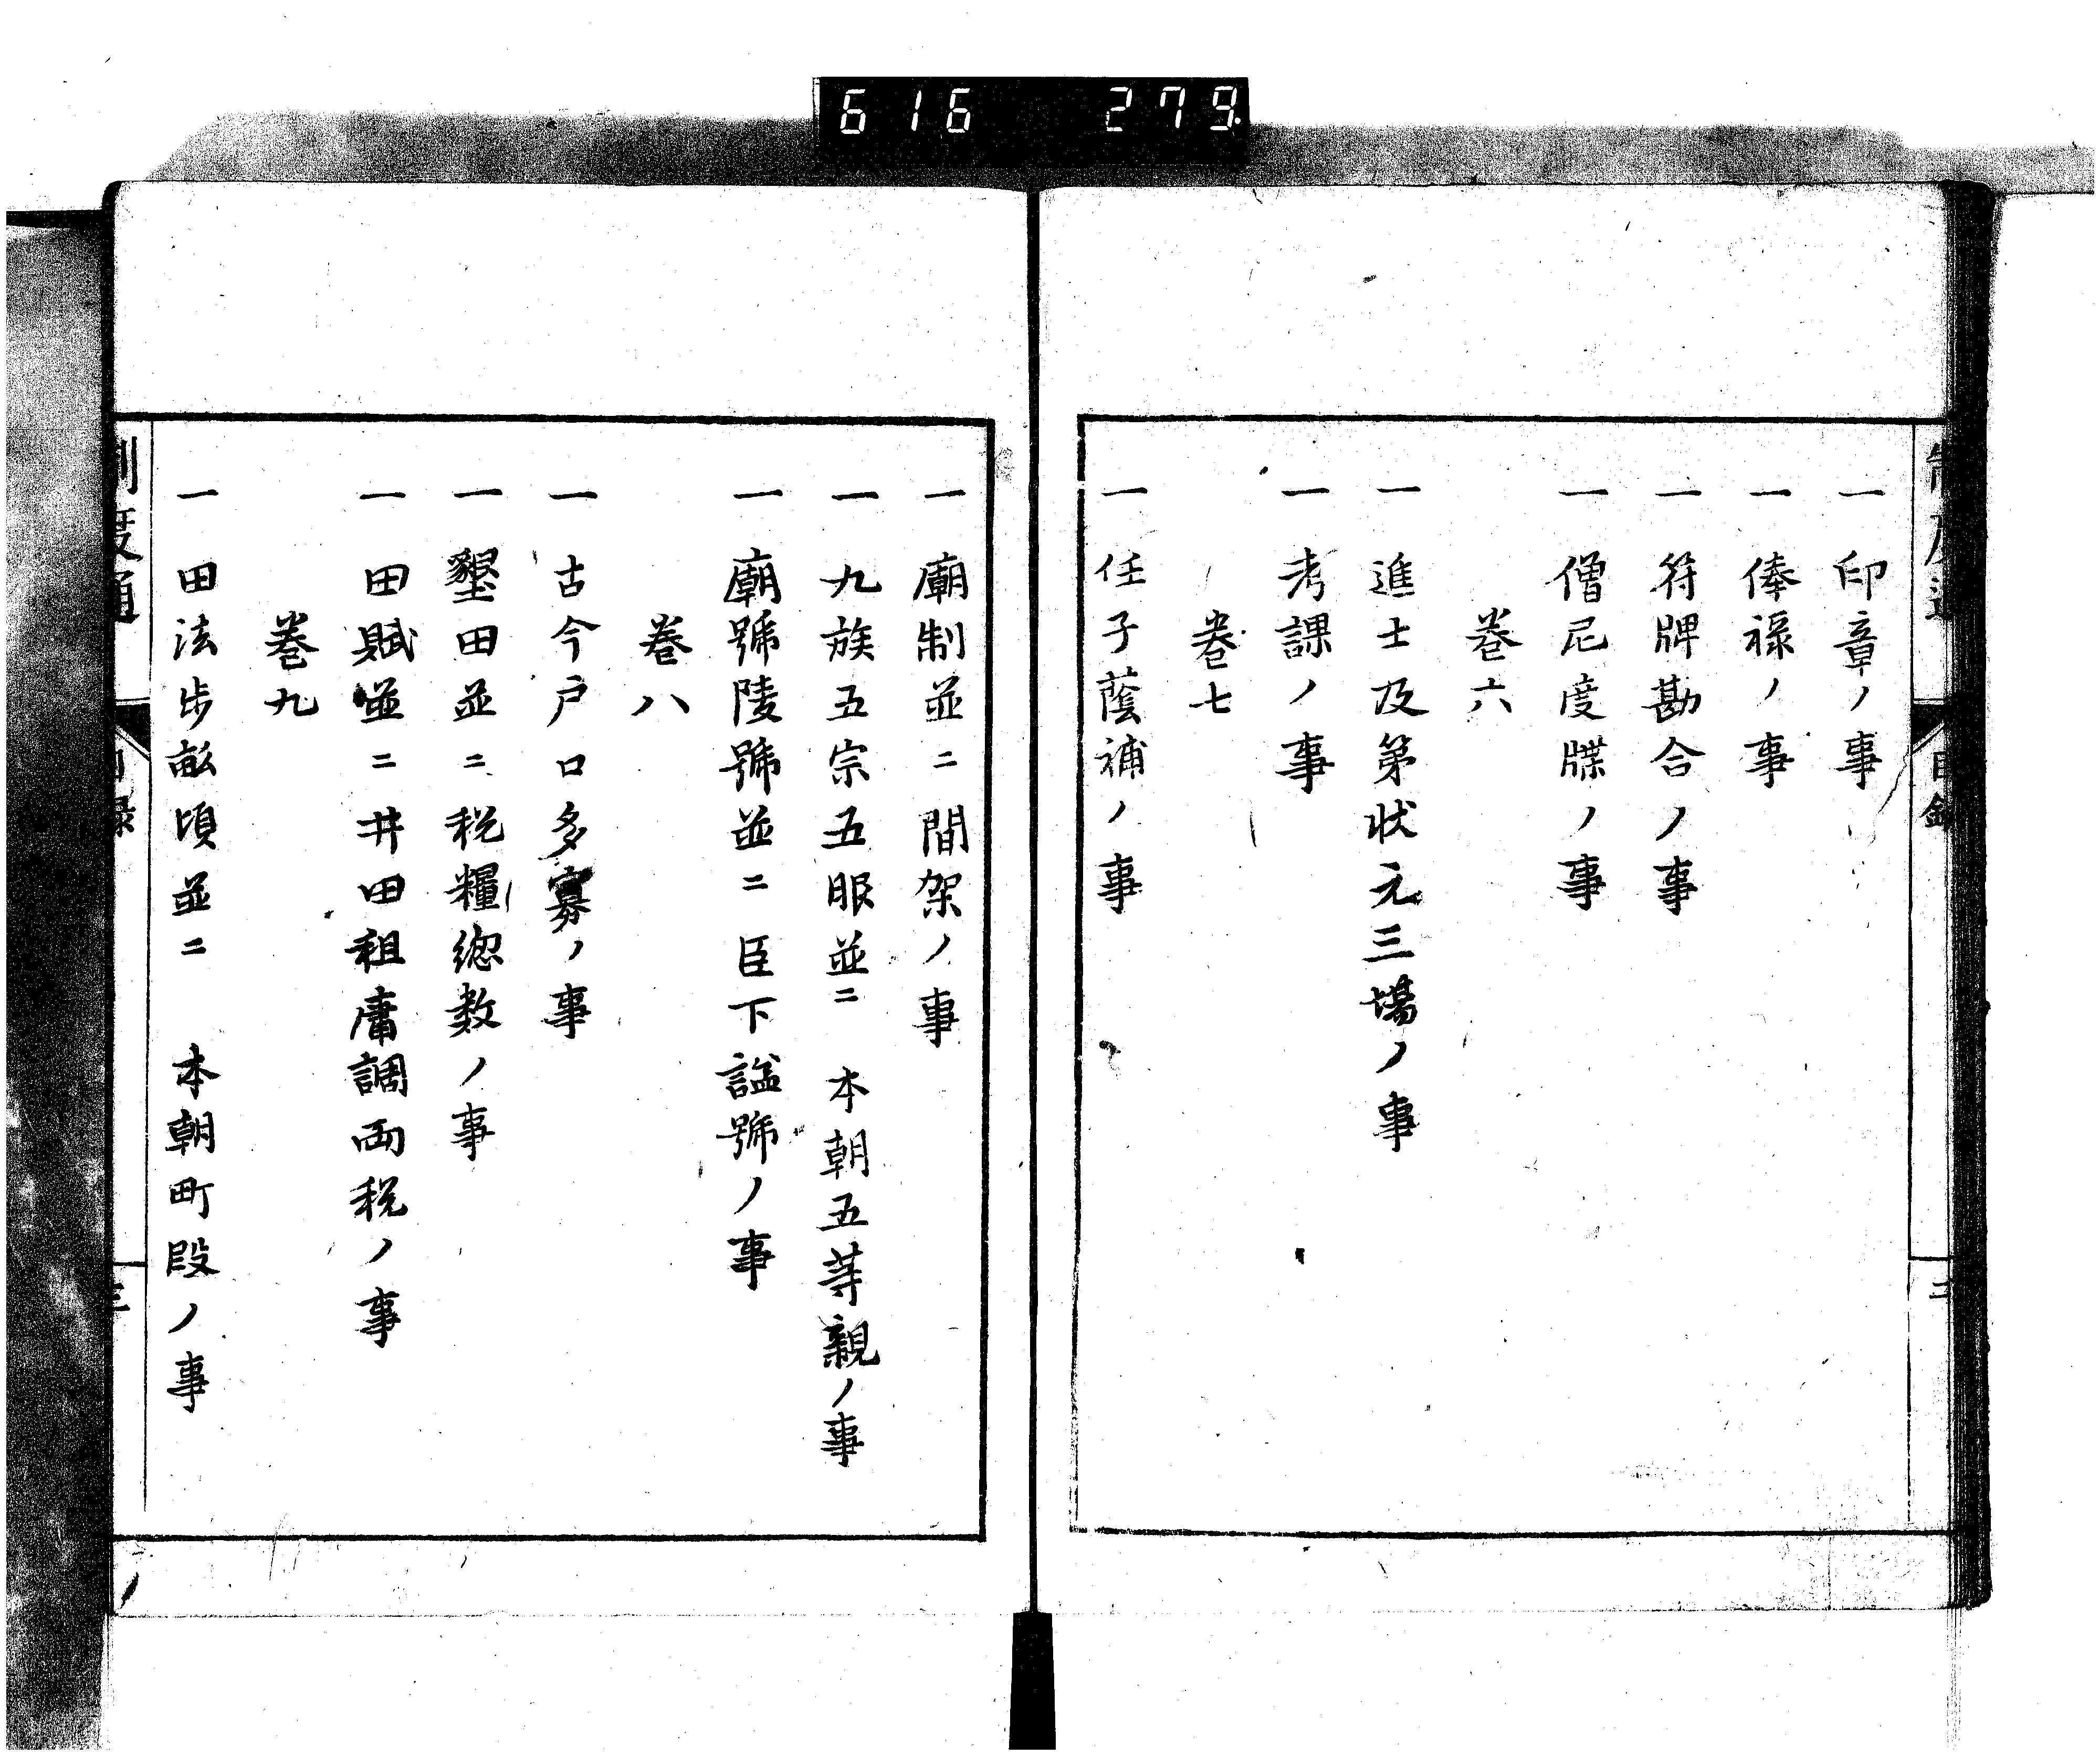 616 279
一 印章ノ事
一 俸禄ノ事
一 符牌勘合ノ事
一 僧尼度牒ノ事
巻六
一 進士及第状元三場ノ事
一 考課ノ事
巻七
一 任子蔭補ノ事
一 廟制並ニ間架ノ事
一 九族五宗五服並ニ 本朝五等親ノ事
一 廟號陵號並ニ臣下諡號ノ事
巻八
一 古今户口多寡ノ事
一 墾田並ニ税糧総数ノ事
一 田賦並ニ井田租庸調両税ノ事
巻九
一 田法歩畝頃並ニ 本朝町段ノ事
制度通 目録 三